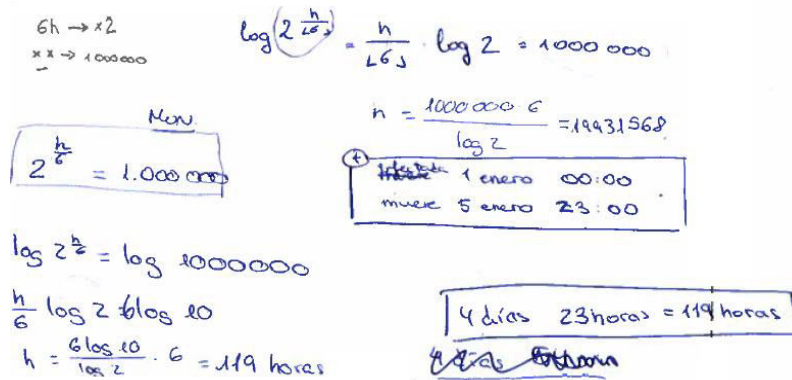 6h → x2
x x → 1000000
log(2^(h/⌊6⌋)) = h/⌊6⌋ · log 2 = 1000 000
n = 1000000 · 6 / log 2 = 19931568
2^(h/6) = 1.000 000
1 enero 00:00
muere 5 enero 23:00
log 2^(h/6) = log 1000000
h/6 log 2 = 6 log 10
h = 6 log 10 / log 2 · 6 = 119 horas
4 días 23 horas = 119 horas